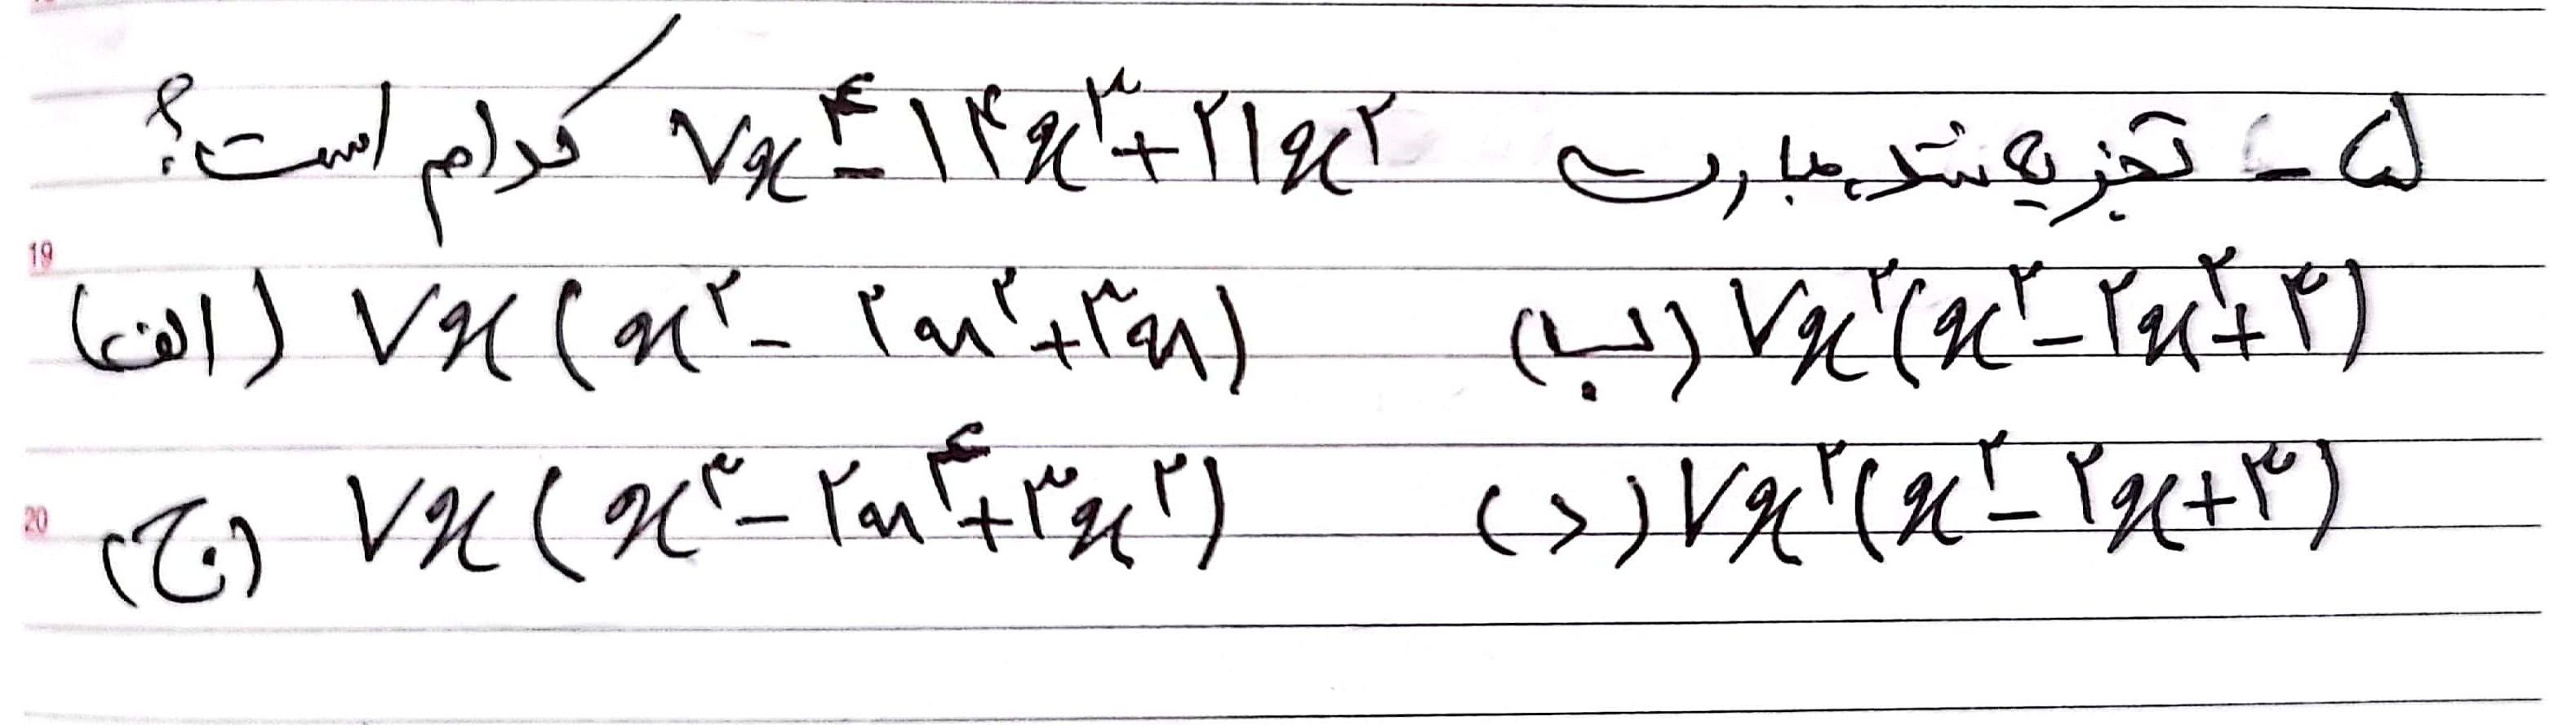 ۵ - تجزیه شده عبارت ۷x⁴ - ۱۴x³ + ۲۱x² کدام است؟
19
الف) ۷x (x² - ۲x² + ۳x) ب) ۷x² (x² - ۲x² + ۳)
20
ج) ۷x (x³ - ۲x⁴ + ۳x²) د) ۷x² (x² - ۲x + ۳)